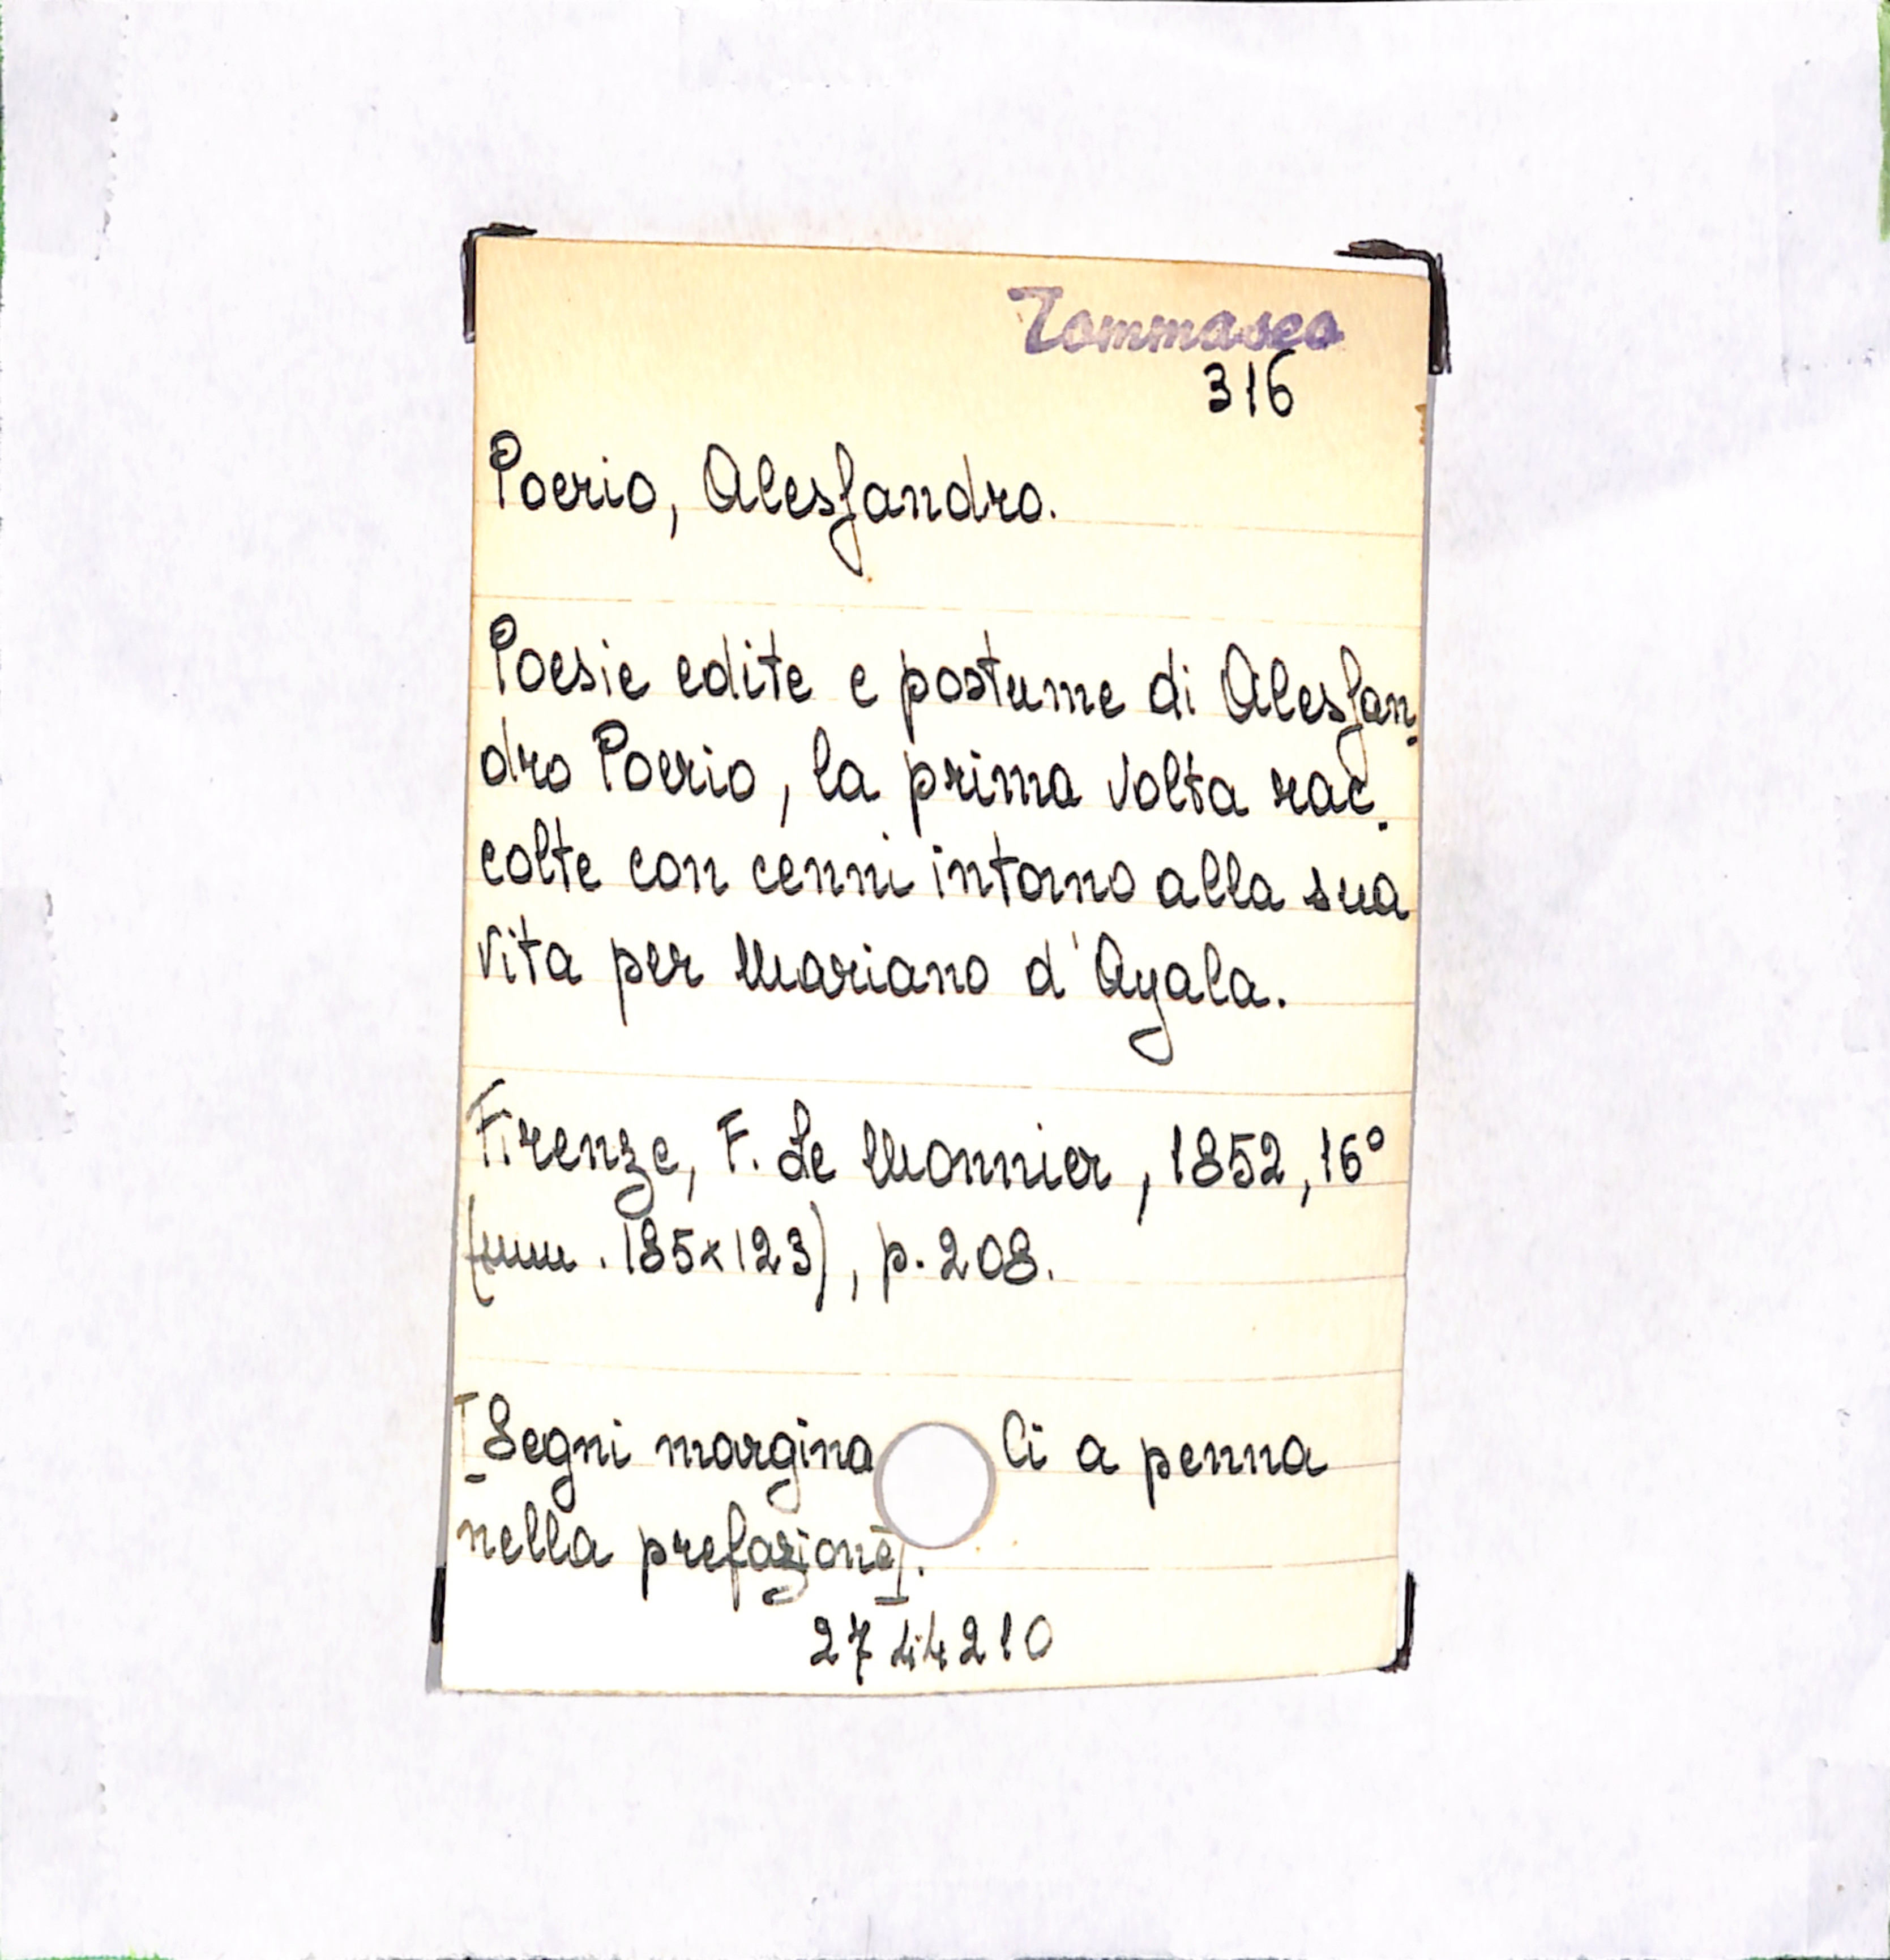 Tommaseo
316
Poerio, Alessandro.
Poesie edite e postume di Alessan-
dro Poerio, la prima volta rac-
colte con cenni intorno alla sua
vita per Mariano d'Ayala.
Firenze, F. Le Monnier, 1852, 16°
(mm. 185x123), p. 208.
[Segni margina li a penna
nella prefazione].
2744210